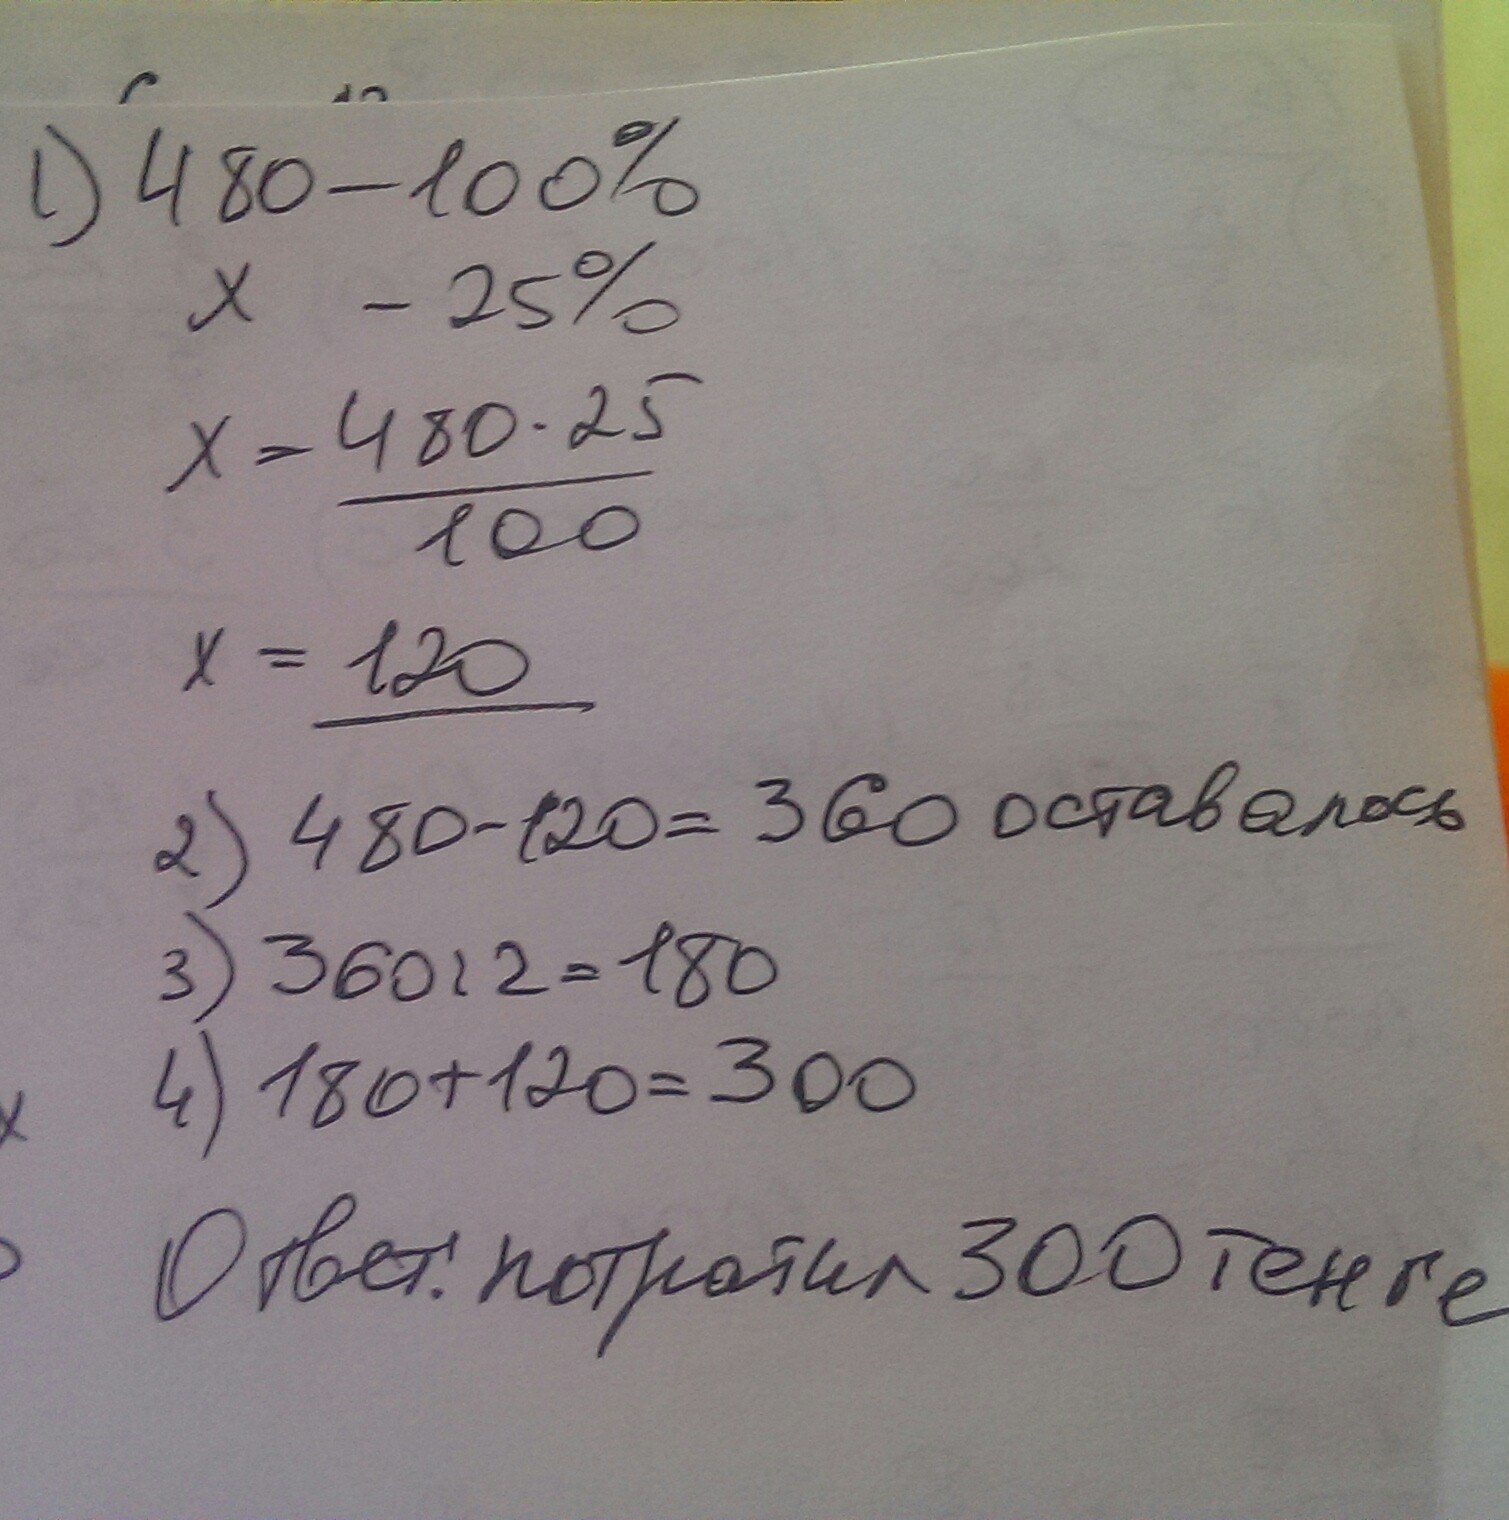 1) 480 – 100%
x – 25%
x = 480 · 25
100
x = 120
2) 480 - 120 = 360 оставалось
3) 360 : 2 = 180
4) 180 + 120 = 300
x
Ответ: потратил 300 тенге